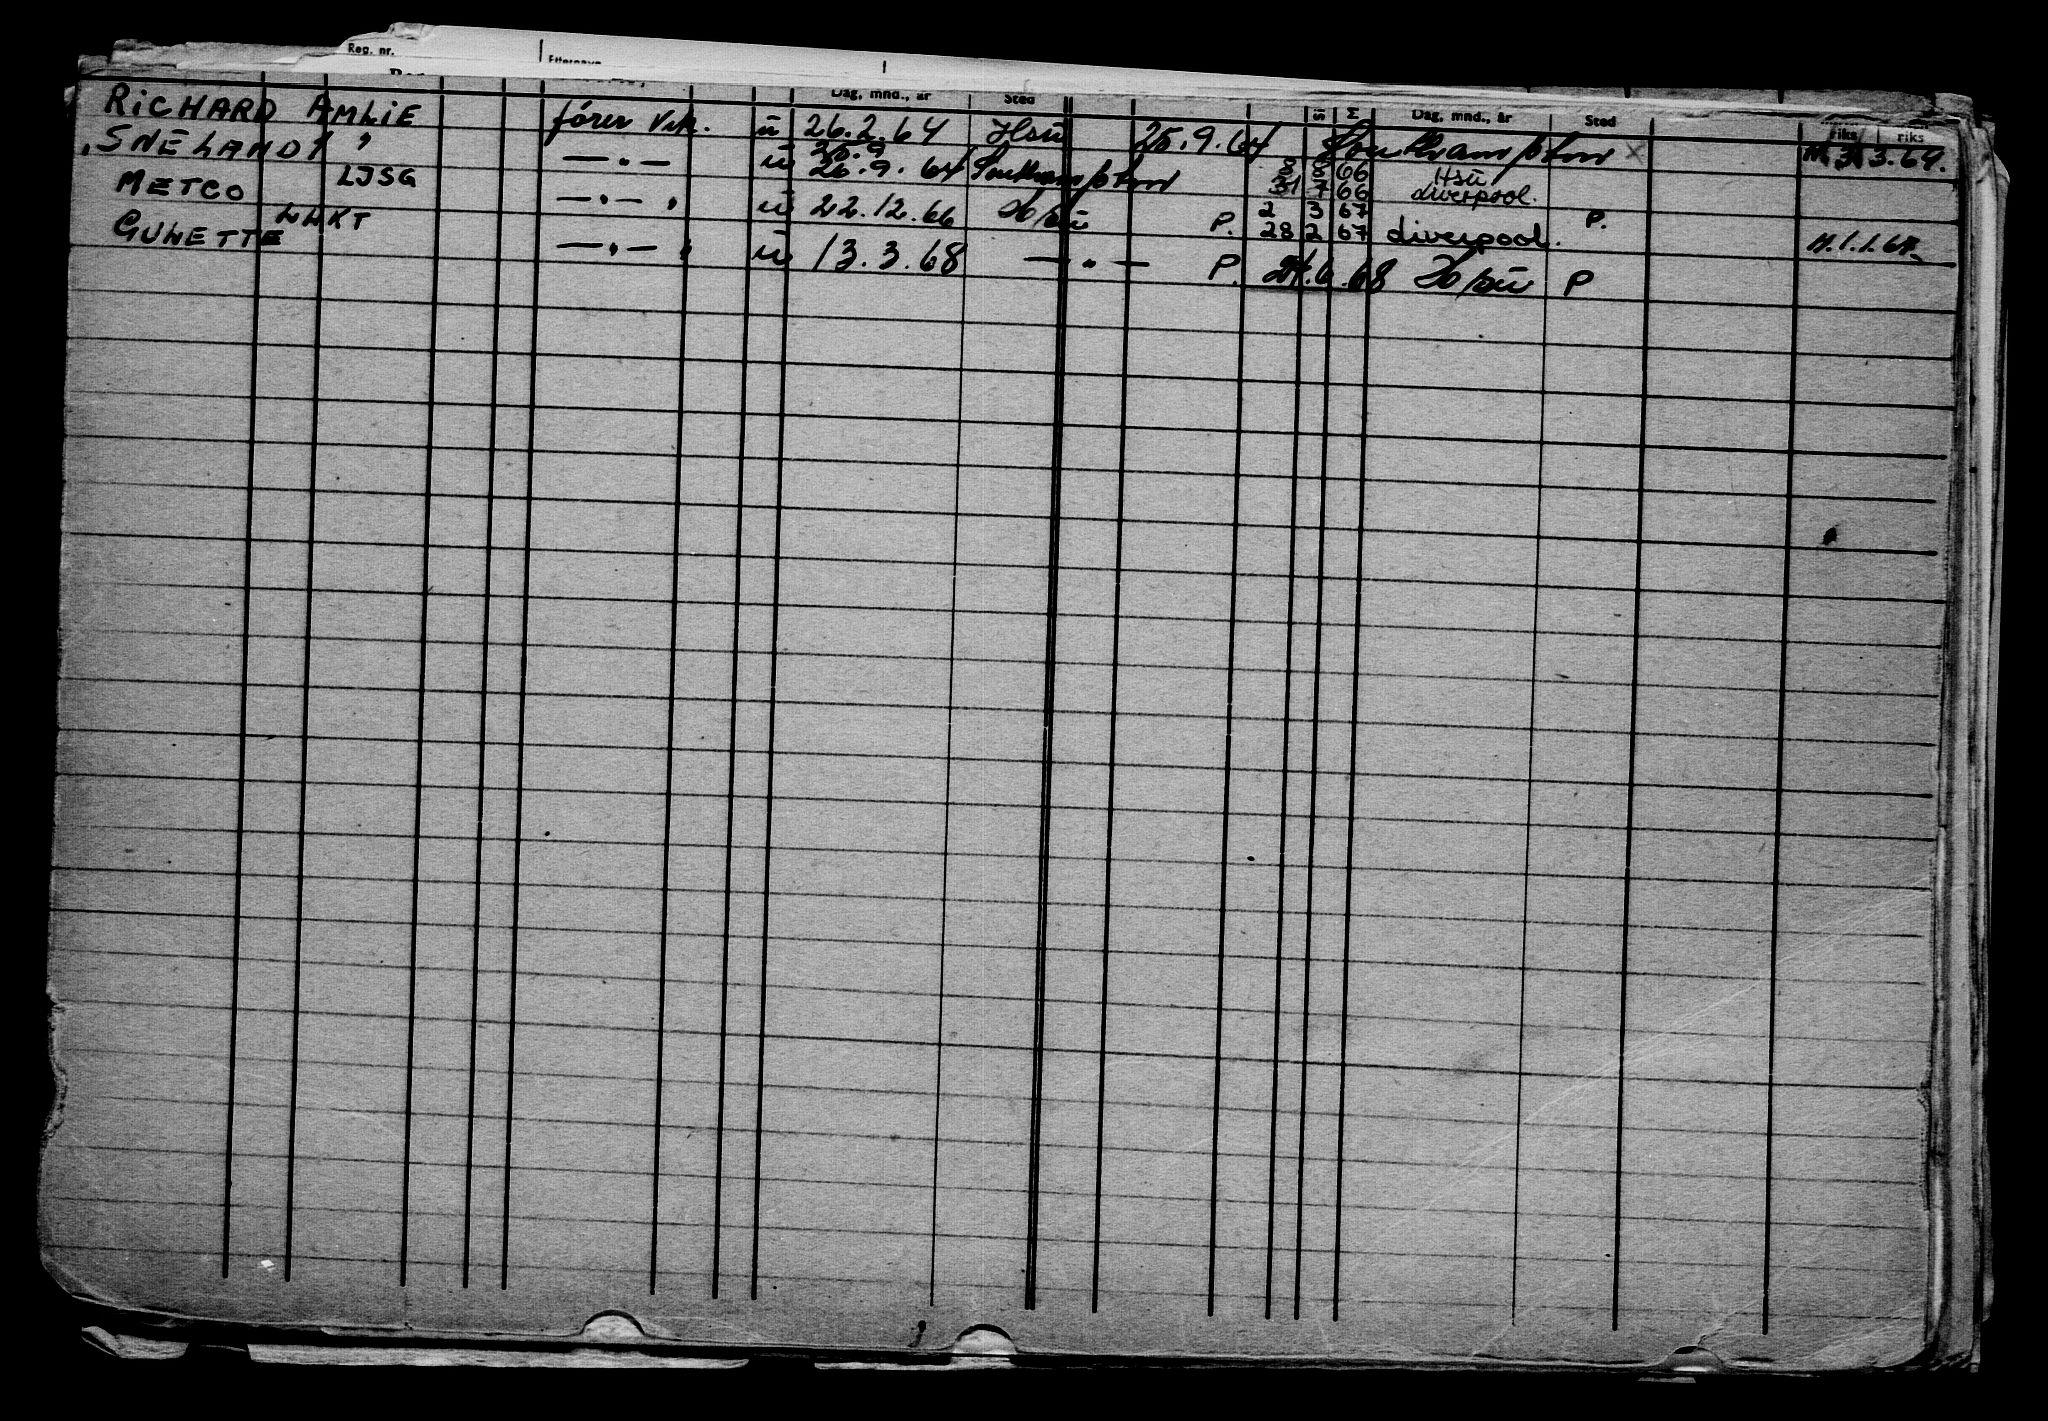 Reg. nr. Etternavn
Dag, mnd., år Sted Dag, mnd., år Sted riks riks
RICHARD AMLIE fører Vik. u 26.2.64 Hsū 25.9.64 Southampton x M. 3.3.64.
25.9 8 8 66 Hsū
SNELAND I " — " — u 26.9.64 Southampton 31 7 66 Liverpool.
2 3 67 P.
METCO LJSG — " — " u 22.12.66 H/sū P. 28 2 67 Liverpool. M.1.1.67.
GUNETTE LLKT — " — " u 13.3.68 — " — P. 24.6.68 H/sū P